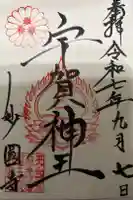 奉拝 令和七年九月七日
宇賀神王
妙圓寺